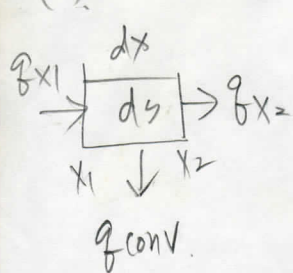 dx
qx1
ds
qx2
x1
x2
qconv.